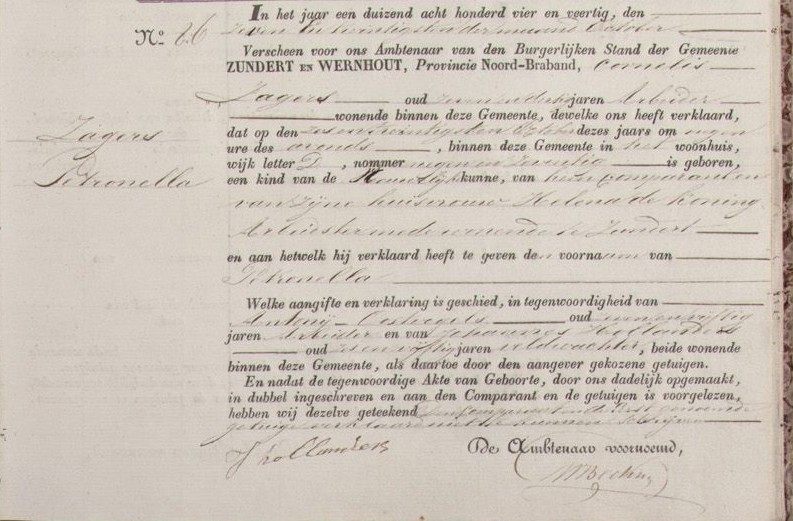 In het jaar een duizend acht honderd vier en veertig, den
No. 26 zeven en twintigsten der maand October
Verscheen voor ons Ambtenaar van den Burgerlijken Stand der Gemeente
ZUNDERT EN WERNHOUT, Provincie Noord-Braband, Cornelis
Zagers oud jaren Arbeider
wonende binnen deze Gemeente, dewelke ons heeft verklaard,
Zagers
dat op den zes en twintigsten October dezes jaars om negen
ure des avonds, binnen deze Gemeente in het woonhuis,
Petronella
wijk letter D, nommer negen en zeventig is geboren,
een kind van de Vrouwelijk kunne, van hem comparant en
van zijne huisvrouw Helena de Koning
Arbeidster mede wonende te Zundert
en aan hetwelk hij verklaard heeft te geven den voornaam van
Petronella
Welke aangifte en verklaring is geschied, in tegenwoordigheid van
Antonij oud en vijftig
jaren Arbeider en van Johannes Hollanders
oud zes en vijftig jaren veldwachter, beide wonende
binnen deze Gemeente, als daartoe door den aangever gekozene getuigen.
En nadat de tegenwoordige Akte van Geboorte, door ons dadelijk opgemaakt,
in dubbel ingeschreven en aan den Comparant en de getuigen is voorgelezen,
hebben wij dezelve geteekend comparant en de eerst genoemde
getuige verklaarde niet te kunnen schrijven
De Ambtenaar voornoemd,
J Hollanders